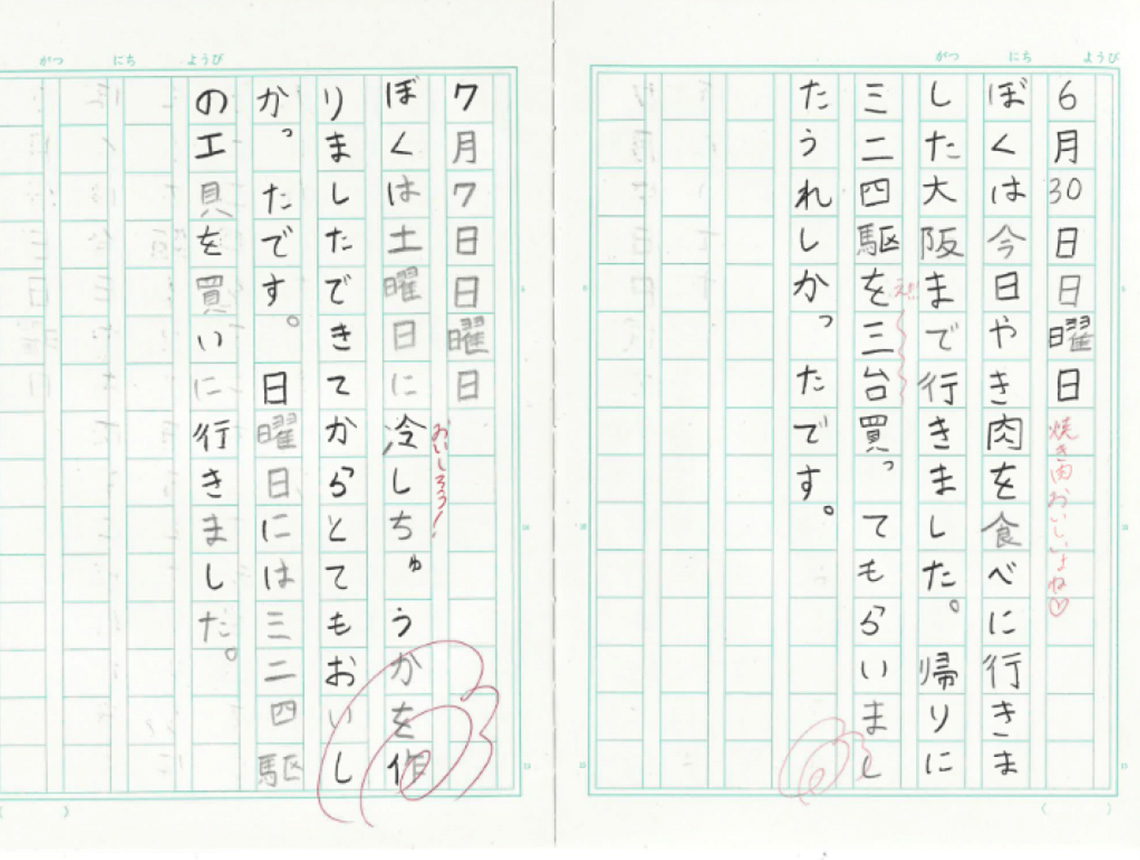 がつ にち ようび
6月30日日曜日
焼き肉おいしいよね♡
ぼくは今日やき肉を食べに行きま
した大阪まで行きました。帰りに
え!!
三二四駆を三台買ってもらいまし
たうれしかったです。
がつ にち ようび
7月7日日曜日
おいしそう!
ぼくは土曜日に冷しちゅうかを作
りましたできてからとてもおいし
かったです。日曜日には三二四駆
の工貝を買いに行きました。